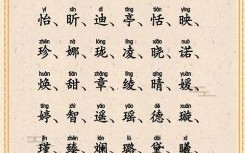 yí xīn dí tíng tián yìng
怡、昕、迪、亭、恬、映、
zhēn nuó lóng líng xiǎo nuò
珍、娜、珑、凌、晓、诺、
huàn tián zhāng líng qíng yuán
焕、甜、章、绫、晴、媛、
tíng zhì yáo yáo dé xuán
婷、智、遥、瑶、德、璇、
jǐn zhēn lán lù dài xī
瑾、臻、斓、璐、黛、曦、